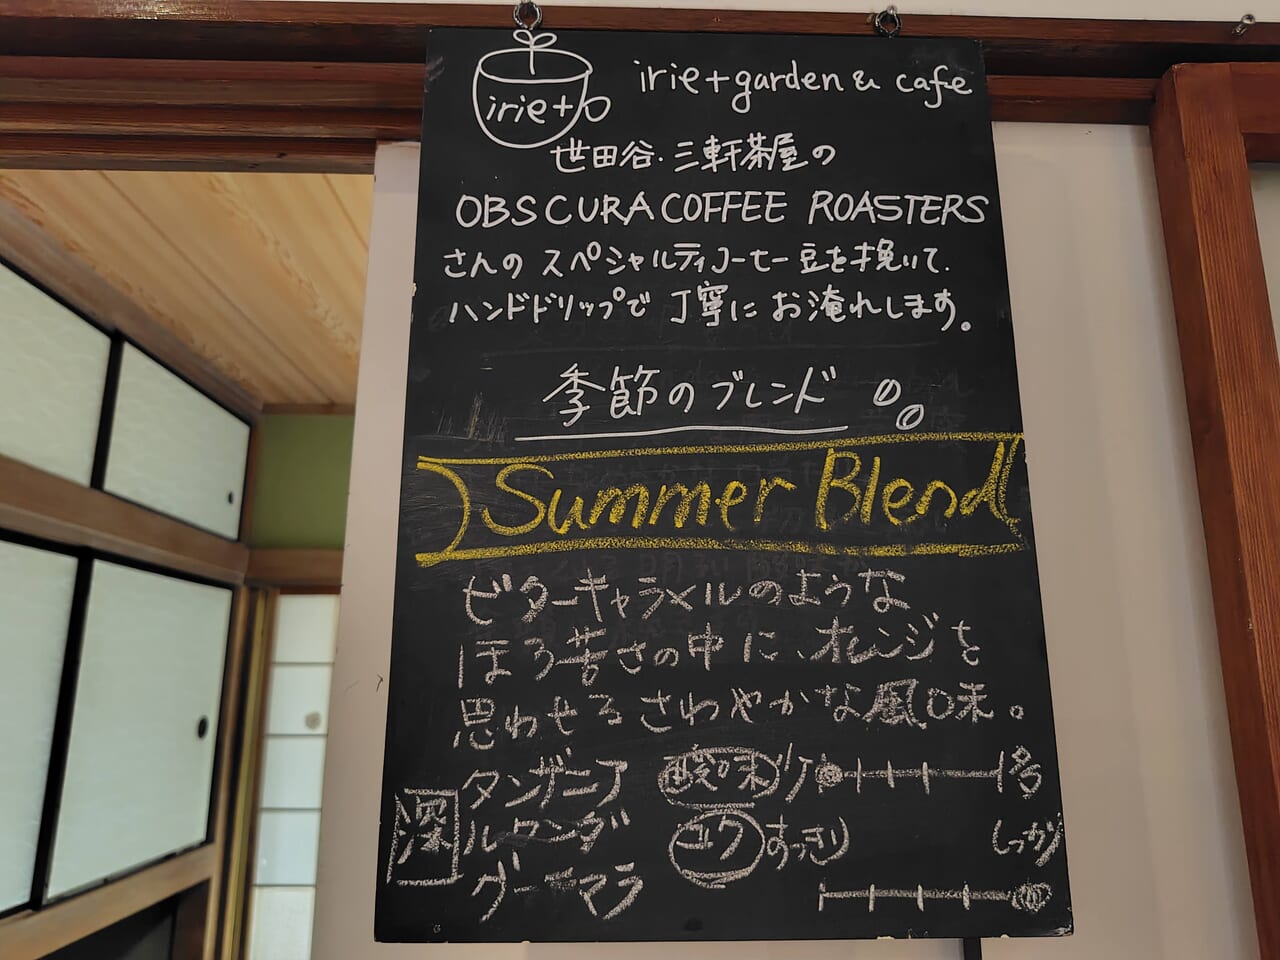 irie+
irie+garden & cafe
世田谷・三軒茶屋の
OBSCURA COFFEE ROASTERS
さんの スペシャルティコーヒー豆を挽いて、
ハンドドリップで 丁寧に お淹れします。
季節のブレンド
Summer Blend
ビターキャラメルのような
ほろ苦さの中に、オレンジを
思わせる さわやかな風味。
深
タンザニア
ルワンダ
グァテマラ
酸味 少
コク すっきり しっかり